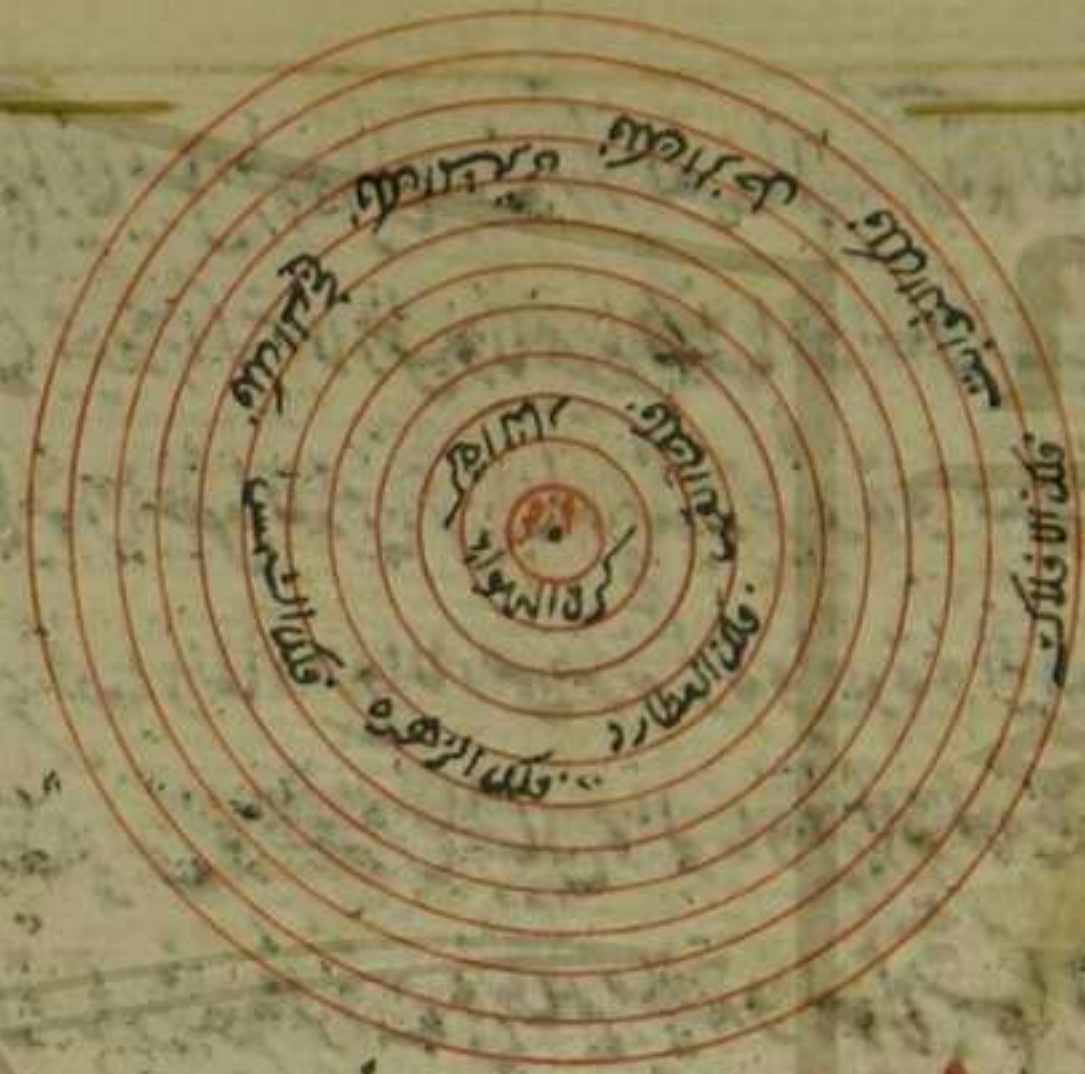 فلك الافلاك
فلك الثوابت
فلك الزحل
فلك المشتري
فلك المريخ
فلك الشمس
فلك الزهرة
فلك العطارد
فلك القمر
كرة الهواء
الارض